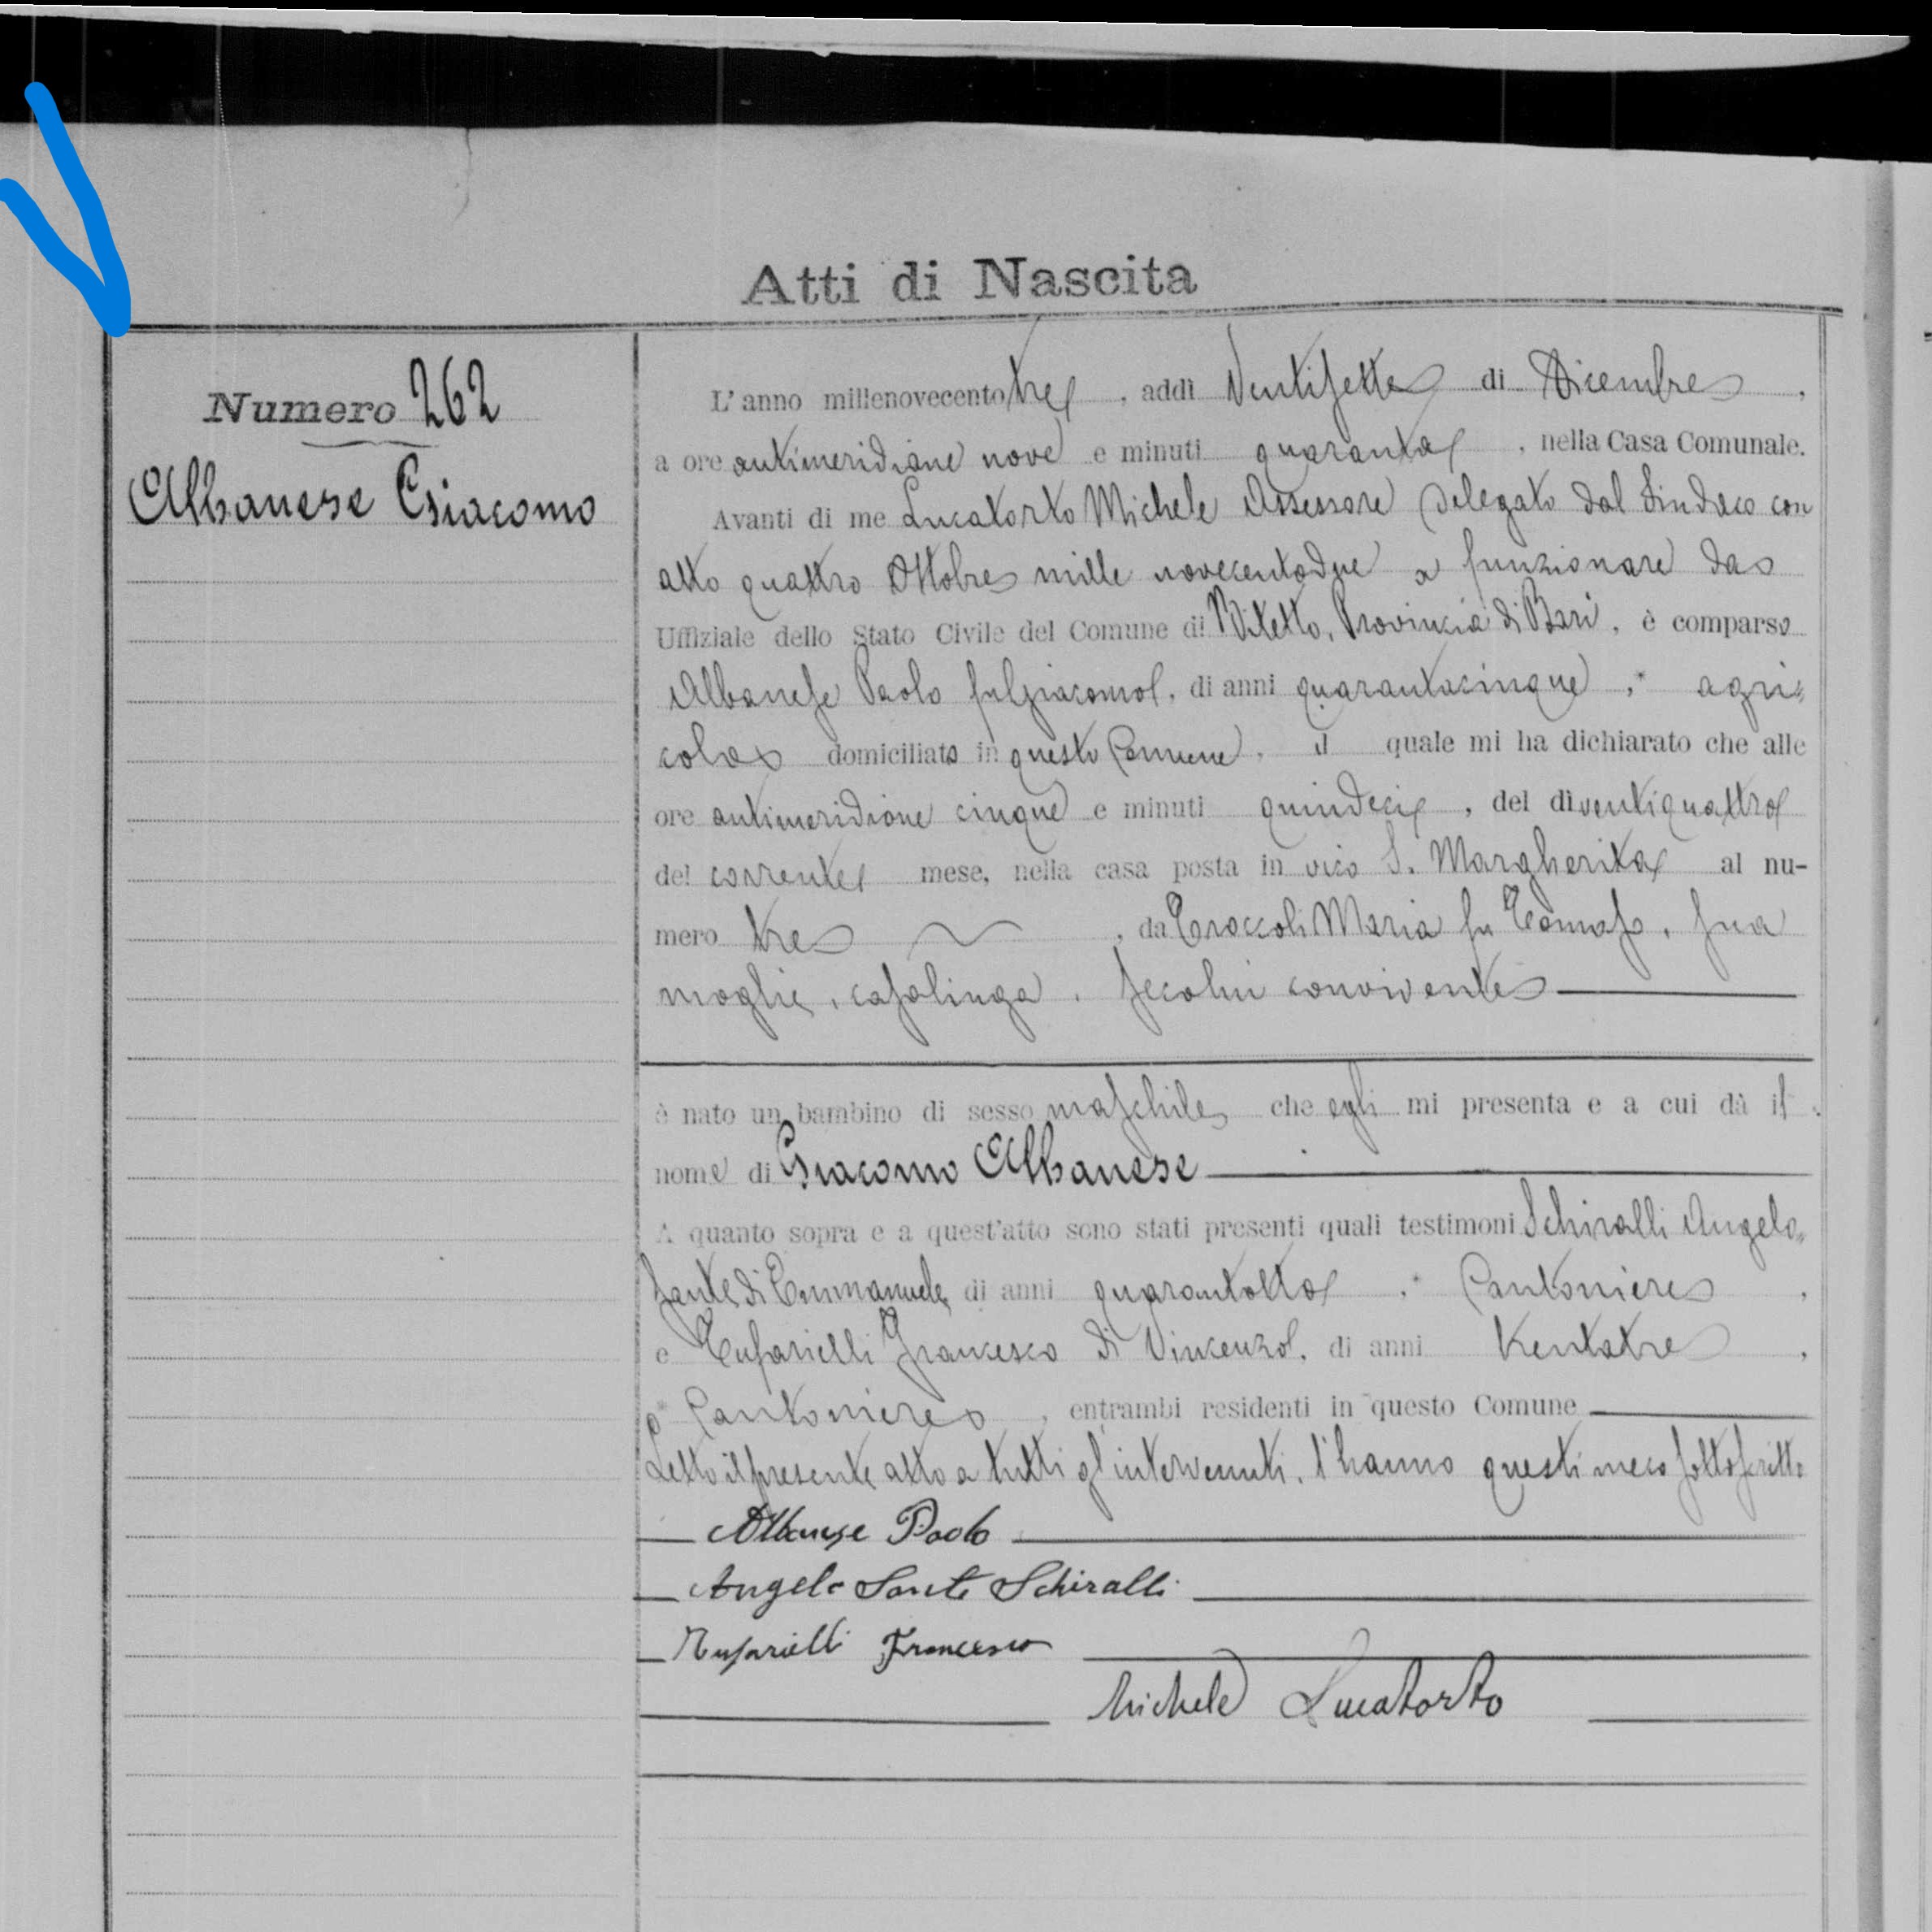 Atti di Nascita
Numero 262
Albanese Giacomo
L'anno millenovecento tre, addì Ventisette di Dicembre,
a ore antimeridiane nove e minuti quaranta, nella Casa Comunale.
Avanti di me Lucatorto Michele Assessore Delegato dal Sindaco con
atto quattro Ottobre mille novecentodue a funzionare da
Uffiziale dello Stato Civile del Comune di Bitetto, Provincia di Bari, è comparso
Albanese Paolo fu Giacomo, di anni quarantacinque, agri=
cola domiciliato in questo Comune, il quale mi ha dichiarato che alle
ore antimeridiane cinque e minuti quindici, del dì ventiquattro
del corrente mese, nella casa posta in vico S. Margherita al nu-
mero tre, da Troccoli Maria fu Tomaso, sua
moglie, casalinga, seco lui convivente
è nato un bambino di sesso maschile che egli mi presenta e a cui dà il
nome di Giacomo Albanese
A quanto sopra e a quest'atto sono stati presenti quali testimoni Schiralli Angelo=
sante di Emmanuele, di anni quarantotto, Cantoniere,
e Tufarielli Francesco di Vincenzo, di anni trentatre,
Cantoniere, entrambi residenti in questo Comune
Letto il presente atto a tutti gl'intervenuti, l'hanno questi meco sottoscritto
Albanese Paolo
Angelo Sante Schiralli
Tufarielli Francesco
Michele Lucatorto